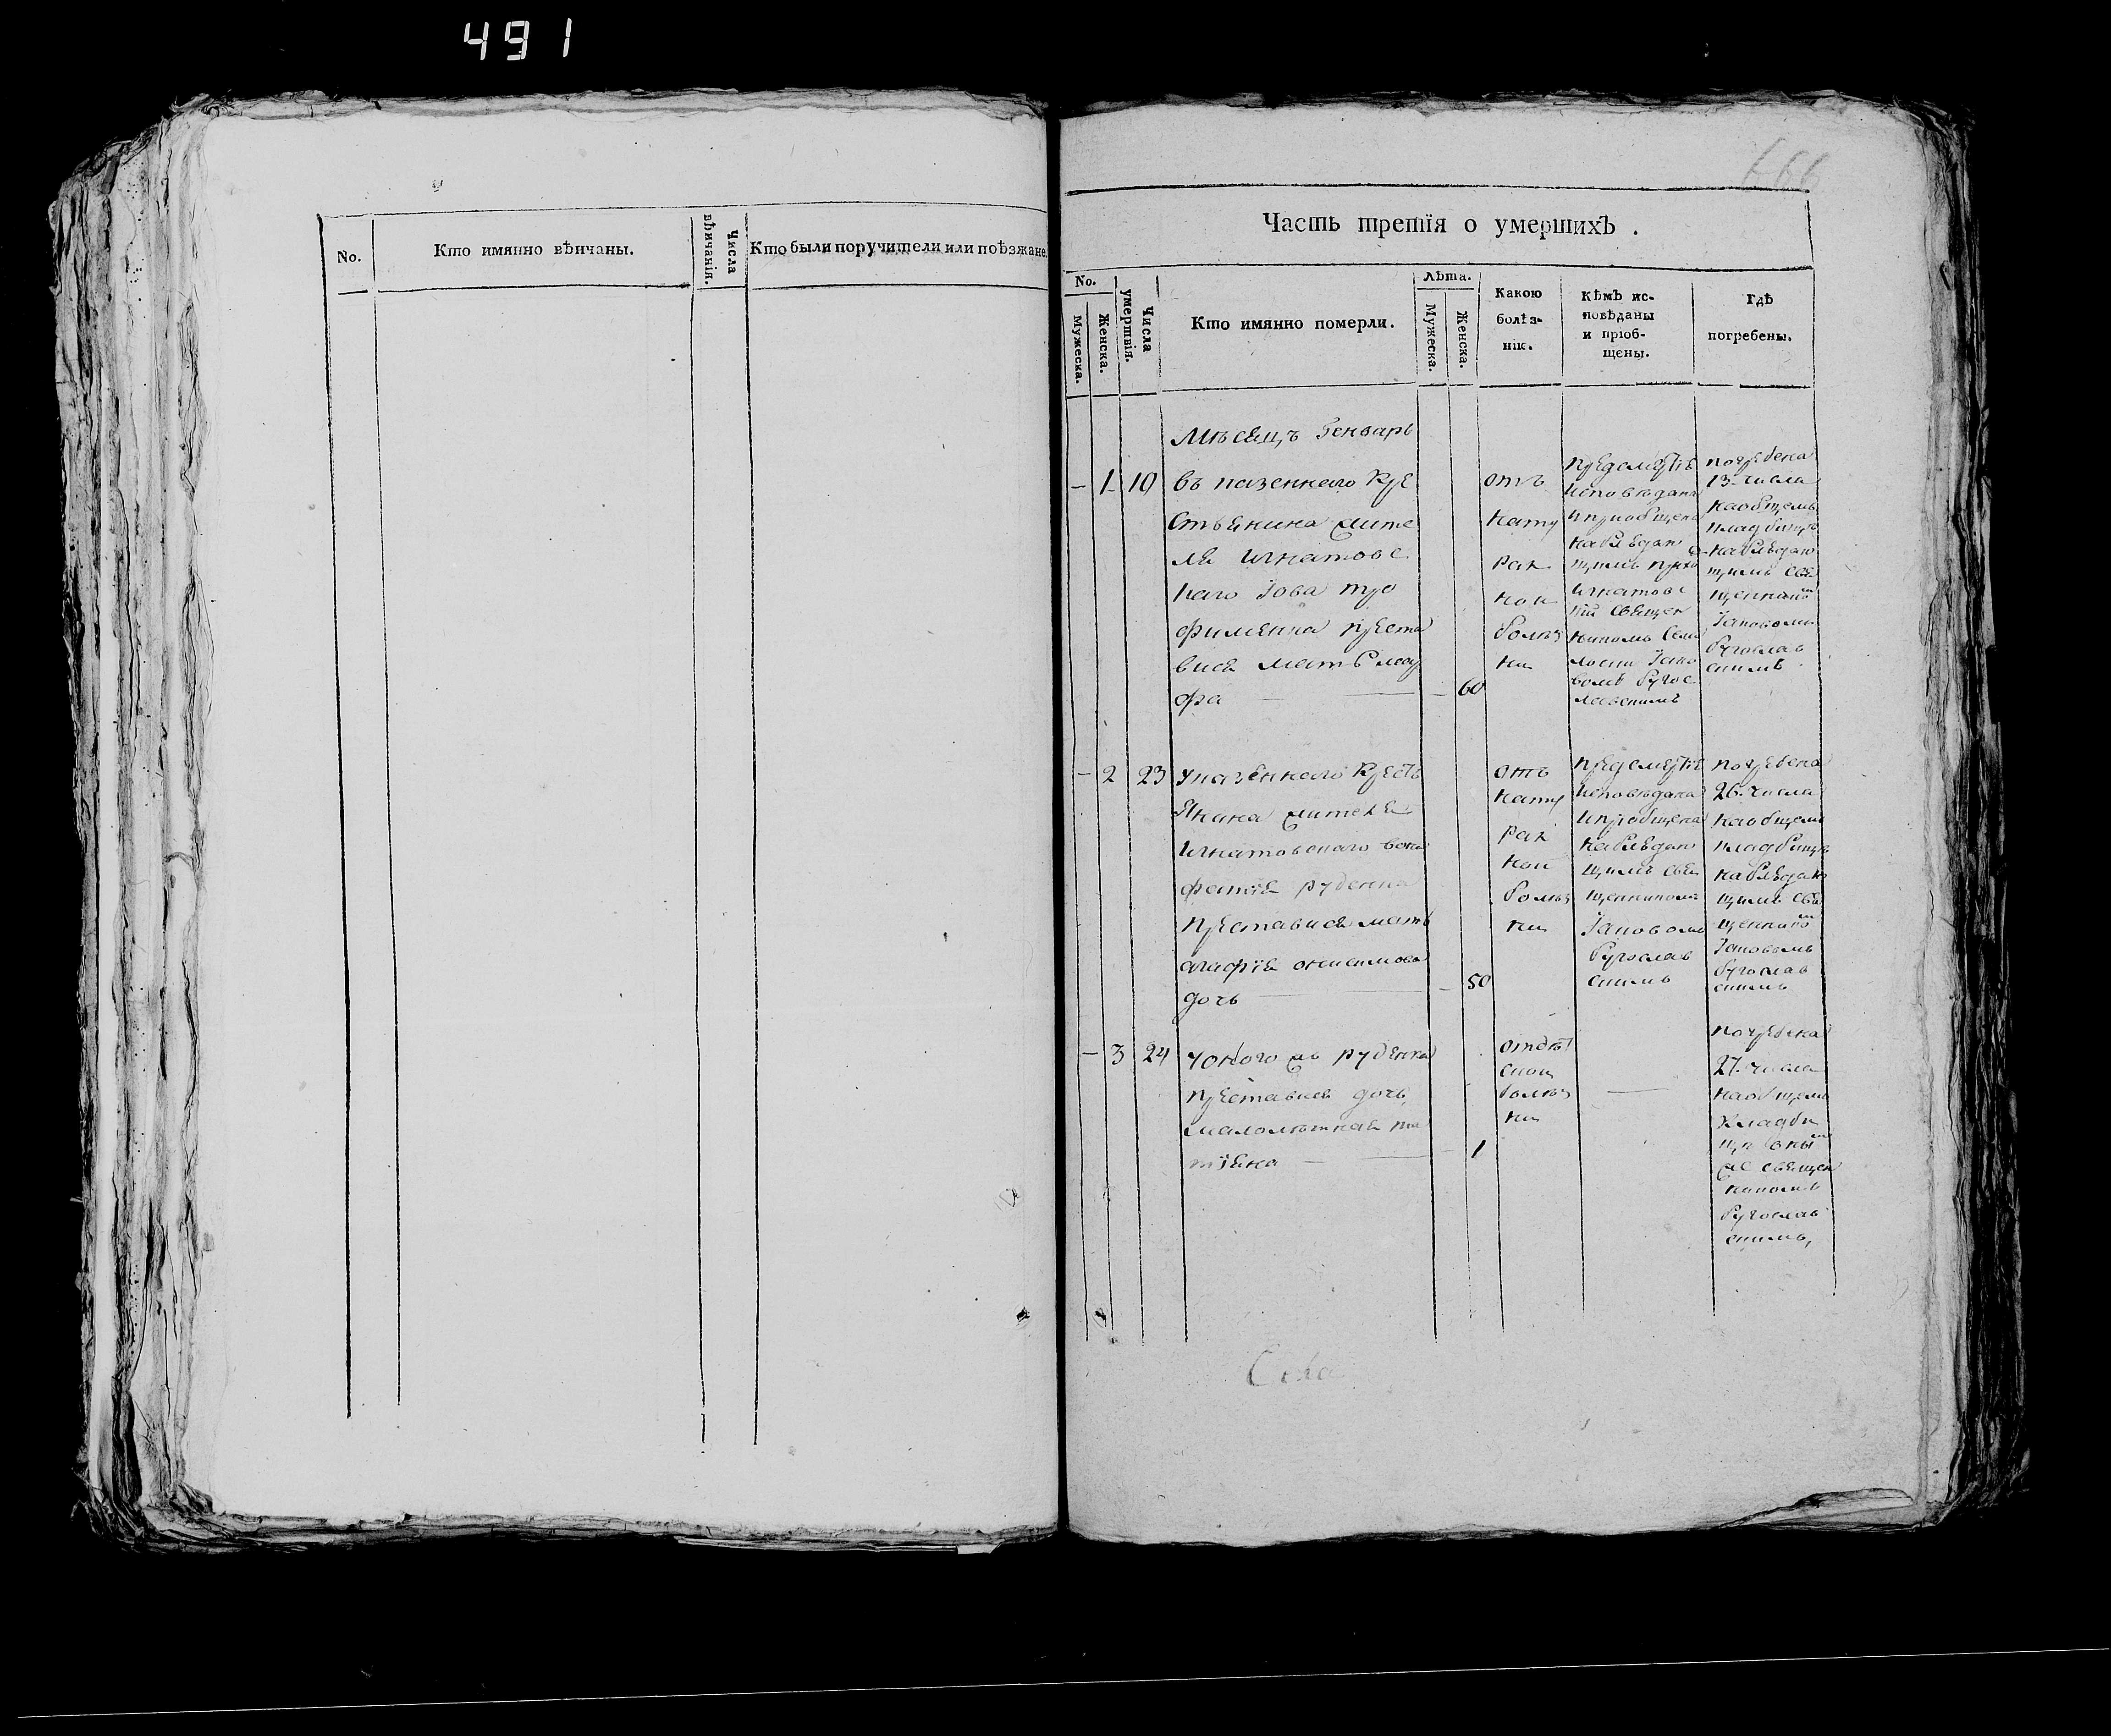 491
666
No.
Кто имянно вѣнчаны.
Числа вѣнчанія.
Кто были поручители или поѣзжане.
Часть третїя о умершихЪ .
No.
Мужеска.
Женска.
Числа умертвія.
Кто имянно померли.
Лѣта.
Мужеска.
Женска.
Какою
болѣз-
нію.
КѣмЪ ис-
повѣданы
и пріоб-
щены.
ГдѢ
погребены.
Мѣсяцъ Генварь
– 1 19
въ казенного кре
стьянина жите
ля игнатовс
каго Іова тро
фименка преста
вися мать
фа – 60
отъ
кату
рал
ной
болѣз
ни
предсмертіе
исповѣдана
и приобщена
наблюдаю
щимъ
игнатовс
кий священ
никомъ
Іако
вомъ Бугос
лавскимъ
погребена
13 числа
наобщемъ
кладбищѣ
наблюдаю
щимъ свя
щенникомъ
Іаковомъ
Бугослав
скимъ
– 2 23
у казенного кресть
янина жителя
игнатовского
фатія руденка
преставися мать
агафія онисимова
дочь – 50
отъ
кату
рал
ной
болѣз
ни
предсмертіе
исповѣдана
и приобщена
наблюдаю
щимъ свя
щенникомъ
Іаковомъ
Бугослав
скимъ
погребена
26 числа
наобщемъ
кладбищѣ
наблюдаю
щимъ свя
щенникомъ
Іаковомъ
Бугослав
скимъ
– 3 24
у оного жъ руденка
преставися дочь
малолѣтная та
тіяна – 1
отдѣт
ской
болѣз
ни
–
погребена
27 числа
наобщемъ
кладби
щѣ онымъ
же священ
никомъ
Бугослав
скимъ,
Села